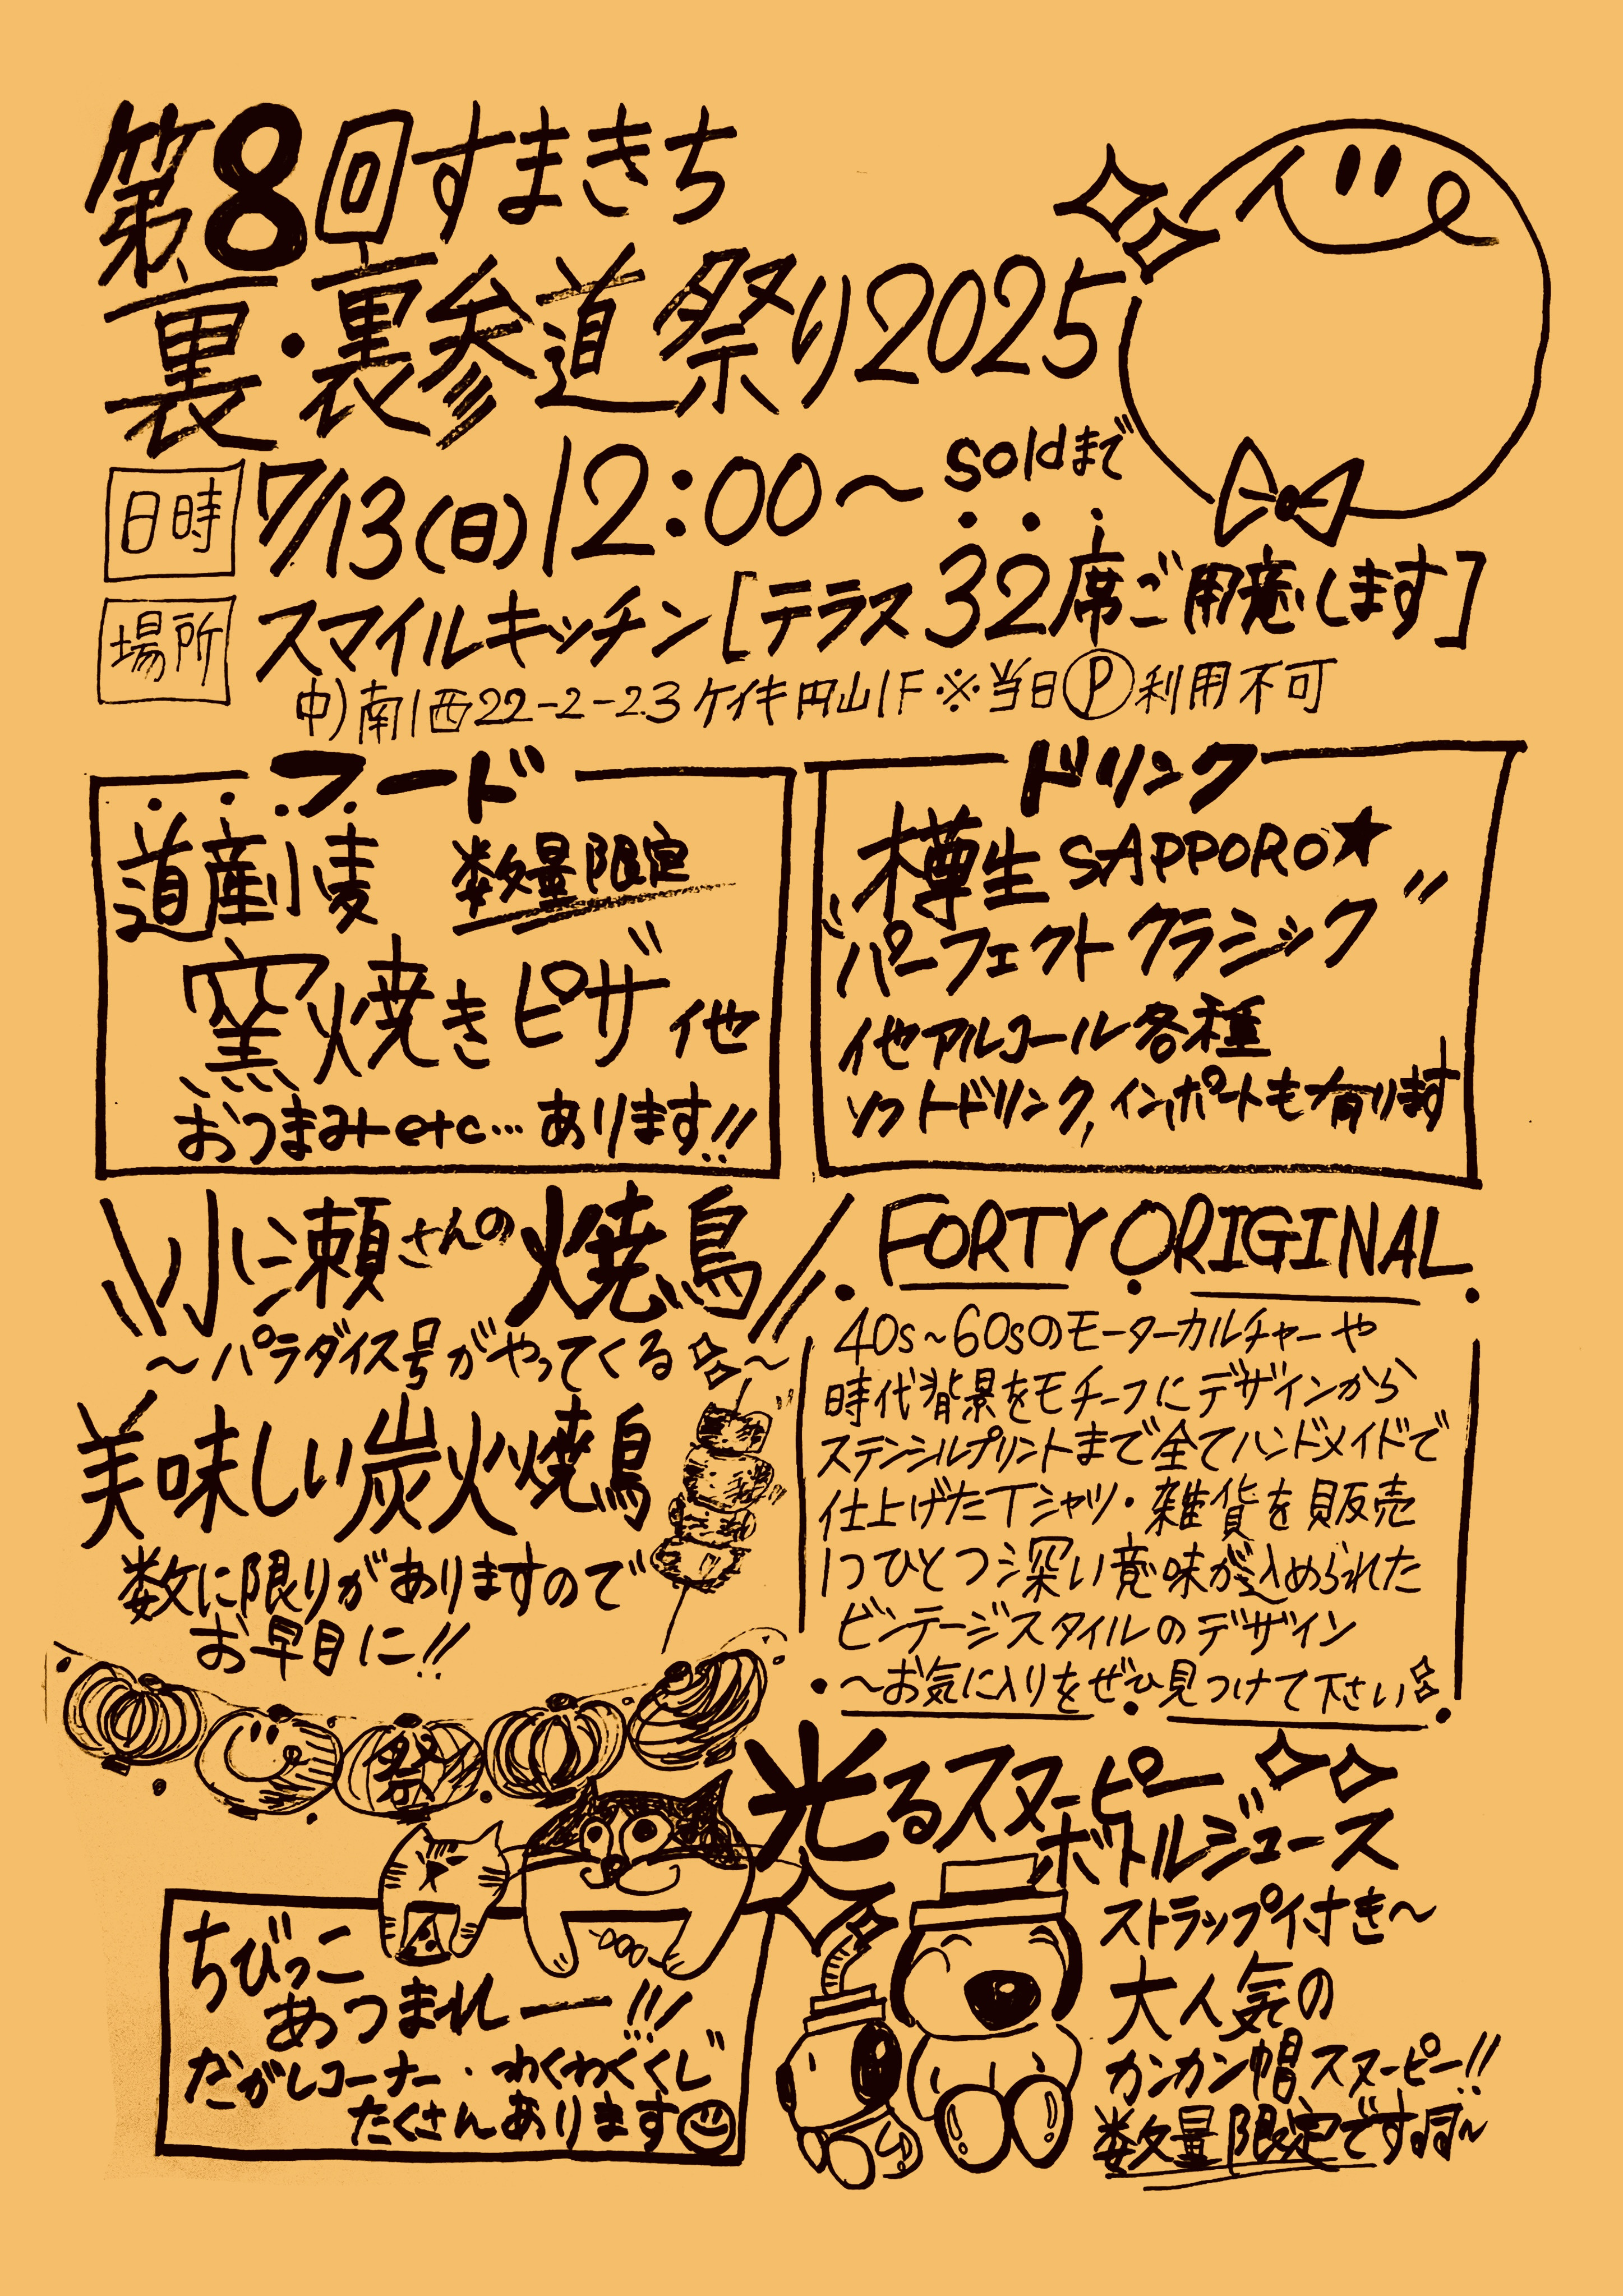 第8回すまきち
裏・裏参道祭り2025
日時 7/13(日)12:00〜soldまで
場所 スマイルキッチン[テラス32席ご用意します]
中)南1西22-2-23 ケイキ円山1F ※当日Ⓟ利用不可
フード
道産小麦 数量限定
窯焼きピザ 他
おつまみetc…あります!!
ドリンク
樽生SAPPORO★
"パーフェクトクラシック"
他アルコール各種
ソフトドリンク,インポートも有ります
\\小仁瀬さんの焼鳥//
〜パラダイス号がやってくる〜
美味しい炭火焼鳥
数に限りがありますので
お早目に!!
FORTY ORIGINAL
40s~60sのモーターカルチャーや
時代背景をモチーフにデザインから
ステンシルプリントまで全てハンドメイドで
仕上げたTシャツ・雑貨を販売
1つひとつ深い意味が込められた
ビンテージスタイルのデザイン
〜お気に入りをぜひ見つけて下さい
祭
光るスヌーピー
ボトルジュース
ストラップ付き〜
大人気の
カンカン帽スヌーピー!!
数量限定です
ちびっこ
あつまれー!!!
だがしコーナー・わくわくくじ
たくさんあります